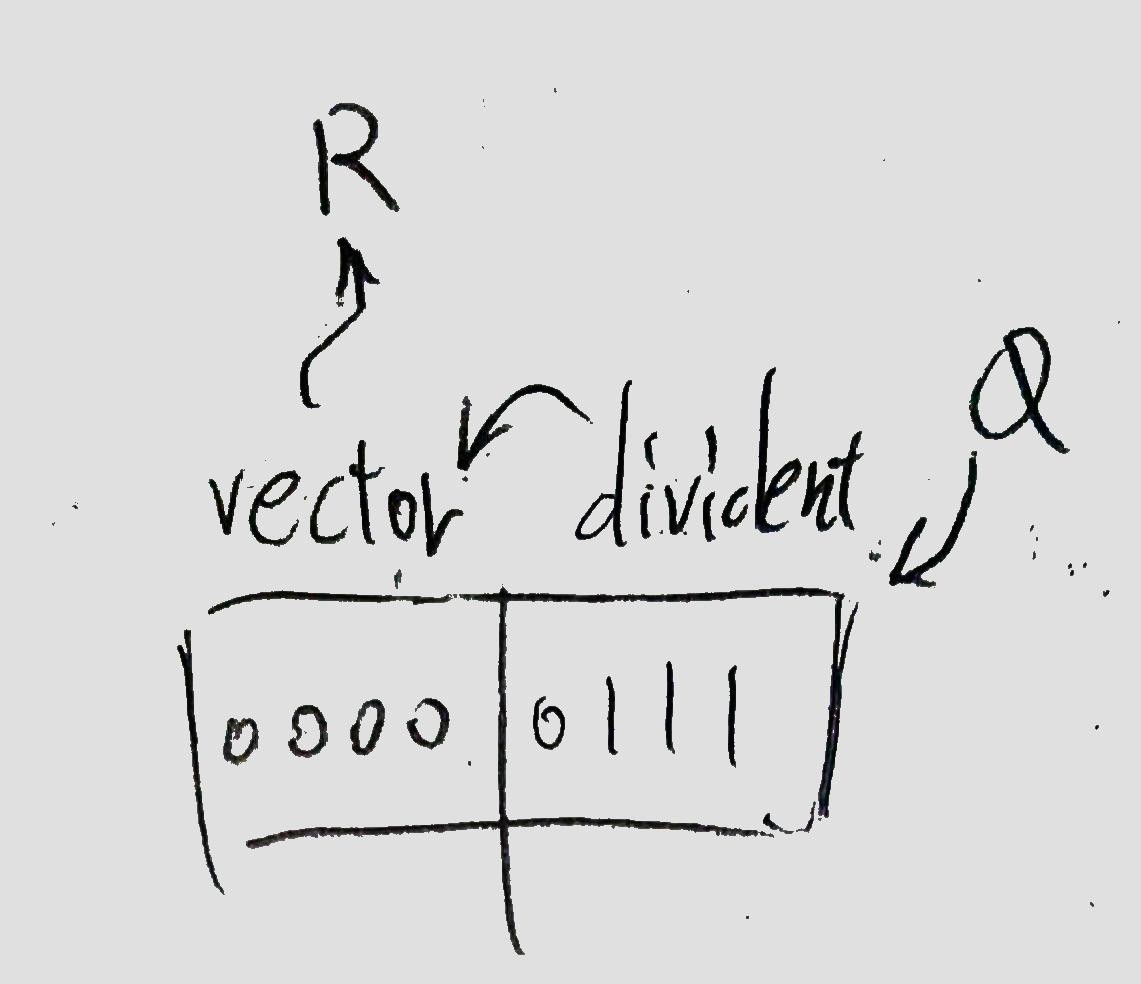 R
Q
vector divident
0000 0111